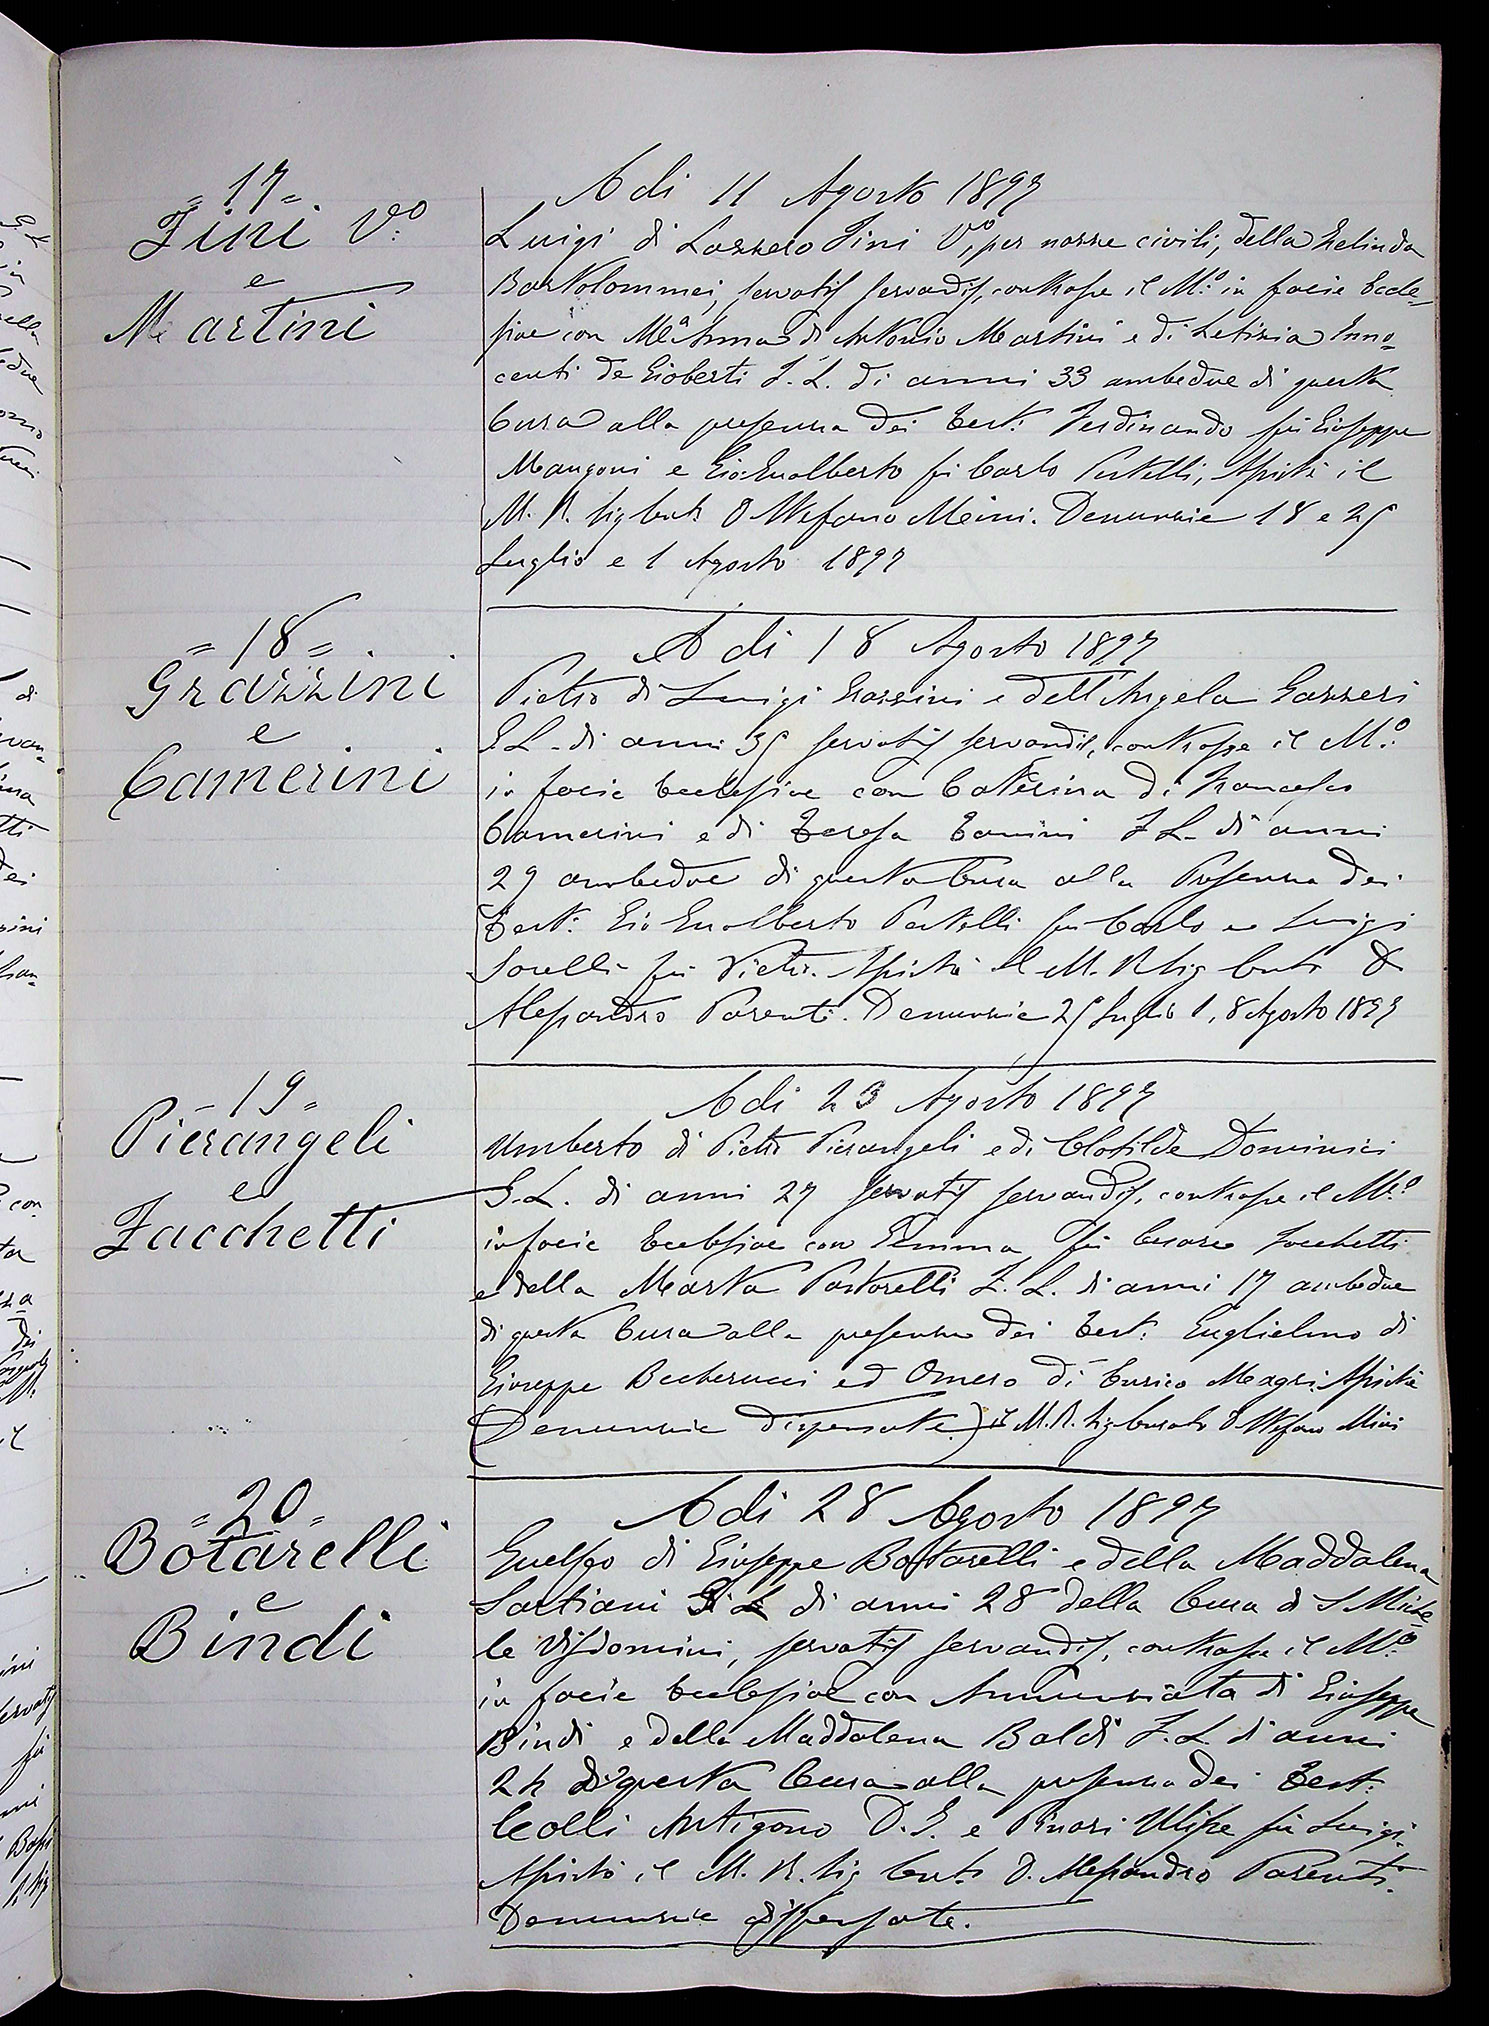 = 17 =
Fini V.o
e
Martini
A di 11 Agosto 1897
Luigi di Lazzero Fini V.o, per nozze civili, della Zelinda
Bartolommei, servatis servandis, contrasse il M.o in facie Eccle=
siae con M.a Anna di Antonio Martini e di Letizia Inno=
centi De Gioberti F. L. di anni 33 ambedue di questa
Cura alla presenza dei Test: Ferdinando fu Giuseppe
Mangoni e Gio Gualberto fu Carlo Pertelli, Assistè il
M. R. Sig Curt. D Stefano Meini. Denunzie 18 e 25
Luglio e 1 Agosto 1897
= 18 =
Grazzini
e
Camerini
A di 18 Agosto 1897
Pietro di Luigi Grazzini e dell'Angela Gazzeri
G L. di anni 35 servatis servandis, contrasse il M.o
in facie Ecclesiae con Caterina di Francesco
Camerini e di Teresa Tanini F L. di anni
29 ambedue di questa Cura alla Presenza dei
Test: Gio Gualberto Pertelli fu Carlo e Luigi
Sorelli fu Pietro. Assistè il M. R Sig Curt. D
Alessandro Parenti. Denunzie 25 Luglio 1, 8 Agosto 1897
19 =
Pierangeli
e
Zacchetti
A di 23 Agosto 1897
Umberto di Pietro Pierangeli e di Clotilde Dominici
G. L. di anni 27 servatis servandis, contrasse il M.o
in facie Ecclesiae con Gemma fu Cesare Zacchetti
e della Marta Pastorelli F. L. di anni 17 ambedue
di questa Cura alla presenza dei Test: Guglielmo di
Giuseppe Becherucci ed Omero di Enrico Magri. Assistè
(Denunzie dispensate.) il M. R. Sig Curato D. Stefano Mini
= 20 =
Botarelli
e
Bindi
A di 28 Agosto 1897
Guelfo di Giuseppe Bottarelli e della Maddalena
Sartiani G L di anni 28 della Cura di S Miche=
le Visdomini, servatis servandis, contrasse il M.o
in facie Ecclesiae con Annunziata di Giuseppe
Bindi e della Maddalena Baldi F. L. di anni
24 di questa Cura alla presenza dei Test:
Ceolli Antigono D. G. e Pinori Ulisse fu Luigi.
Assistè il M. R. Sig Curt. D. Alessandro Parenti.
Denunzie dispensate.